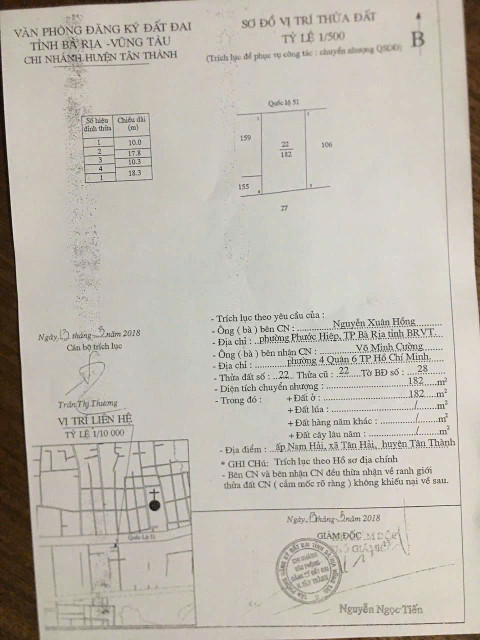 VĂN PHÒNG ĐĂNG KÝ ĐẤT ĐAI
TỈNH BÀ RỊA -VŨNG TÀU
CHI NHÁNH HUYỆN TÂN THÀNH
SƠ ĐỒ VỊ TRÍ THỬA ĐẤT
TỶ LỆ 1/500
(Trích lục để phục vụ công tác : chuyển nhượng QSDĐ)
B
Số hiệu đỉnh thửa
Chiều dài (m)
1 10.0
2 17.8
3 10.3
4 18.3
1
Quốc lộ 51
159
22
182
106
155
27
Ngày 13 tháng 3 năm 2018
Cán bộ trích lục
Trần Thị Thương
VỊ TRÍ LIÊN HỆ
TỶ LỆ 1/10 000
Quốc Lộ 51
- Trích lục theo yêu cầu của :
- Ông ( bà ) bên CN : Nguyễn Xuân Hồng
- Địa chỉ : phường Phước Hiệp, TP Bà Rịa tỉnh BRVT.
- Ông ( bà ) bên nhận CN : Võ Minh Cường
- Địa chỉ : phường 4 Quận 6 TP Hồ Chí Minh.
- Thửa đất số : 22 Thửa cũ : 22 Tờ BĐ số : 28
- Diện tích chuyển nhượng : 182 m²
- Trong đó : + Đất ở : 182 m²
+ Đất lúa : / m²
+ Đất hàng năm khác : / m²
+ Đất cây lâu năm : / m²
- Địa điểm : ấp Nam Hải, xã Tân Hải, huyện Tân Thành
* GHI CHÚ: Trích lục theo Hồ sơ địa chính
- Bên CN và bên nhận CN đều thừa nhận về ranh giới
thửa đất CN ( cắm mốc rõ ràng ) không khiếu nại về sau.
Ngày 13 tháng 3 năm 2018
GIÁM ĐỐC
Nguyễn Ngọc Tiến